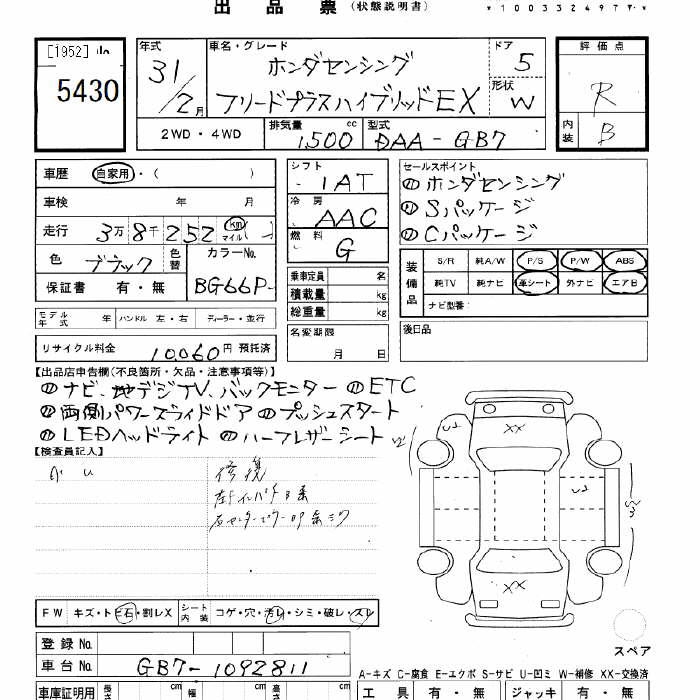 出品票（状態説明書）
*1003324977*
[1952]
5430
年式 31/2月
車名・グレード ホンダセンシング
フリードプラスハイブリッドEX
ドア 5
形状 W
評価点 R
内装 B
2WD・4WD
排気量 1,500 cc
型式 DAA-GB7
車歴 自家用・( )
車検 年 月
走行 3万8千252 km マイル ( )
色 ブラック 色替
カラーNo. BG66P-
保証書 有・無
シフト 1AT
冷房 AAC
燃料 G
乗車定員 名
積載量 kg
総重量 kg
セールスポイント
ホンダセンシング
Sパッケージ
Cパッケージ
装備品 S/R 純A/W P/S P/W ABS
純TV 純ナビ 革シート 外ナビ エアB
ナビ型番:
モデル年式 年 ハンドル 左・右 ディーラー・並行
名変期限 月 日
後日品
リサイクル料金 10,060円 預託済
【出品店申告欄(不良箇所・欠品・注意事項等)】
ナビ、地デジTV、バックモニター ETC
両側パワースライドドア プッシュスタート
LEDヘッドライト ハーフレザーシート
【検査員記入】
修復
XX
XX
FW キズ・ト ビ石・割レX シート内装 コゲ・穴・汚レ・シミ・破レ・スレ
スペア
登録No.
車台No. GB7-1092811
A-キズ C-腐食 E-エクボ S-サビ U-凹ミ W-補修 XX-交換済
車庫証明用 長さ cm 幅 cm 高さ cm
工具 有・無 ジャッキ 有・無